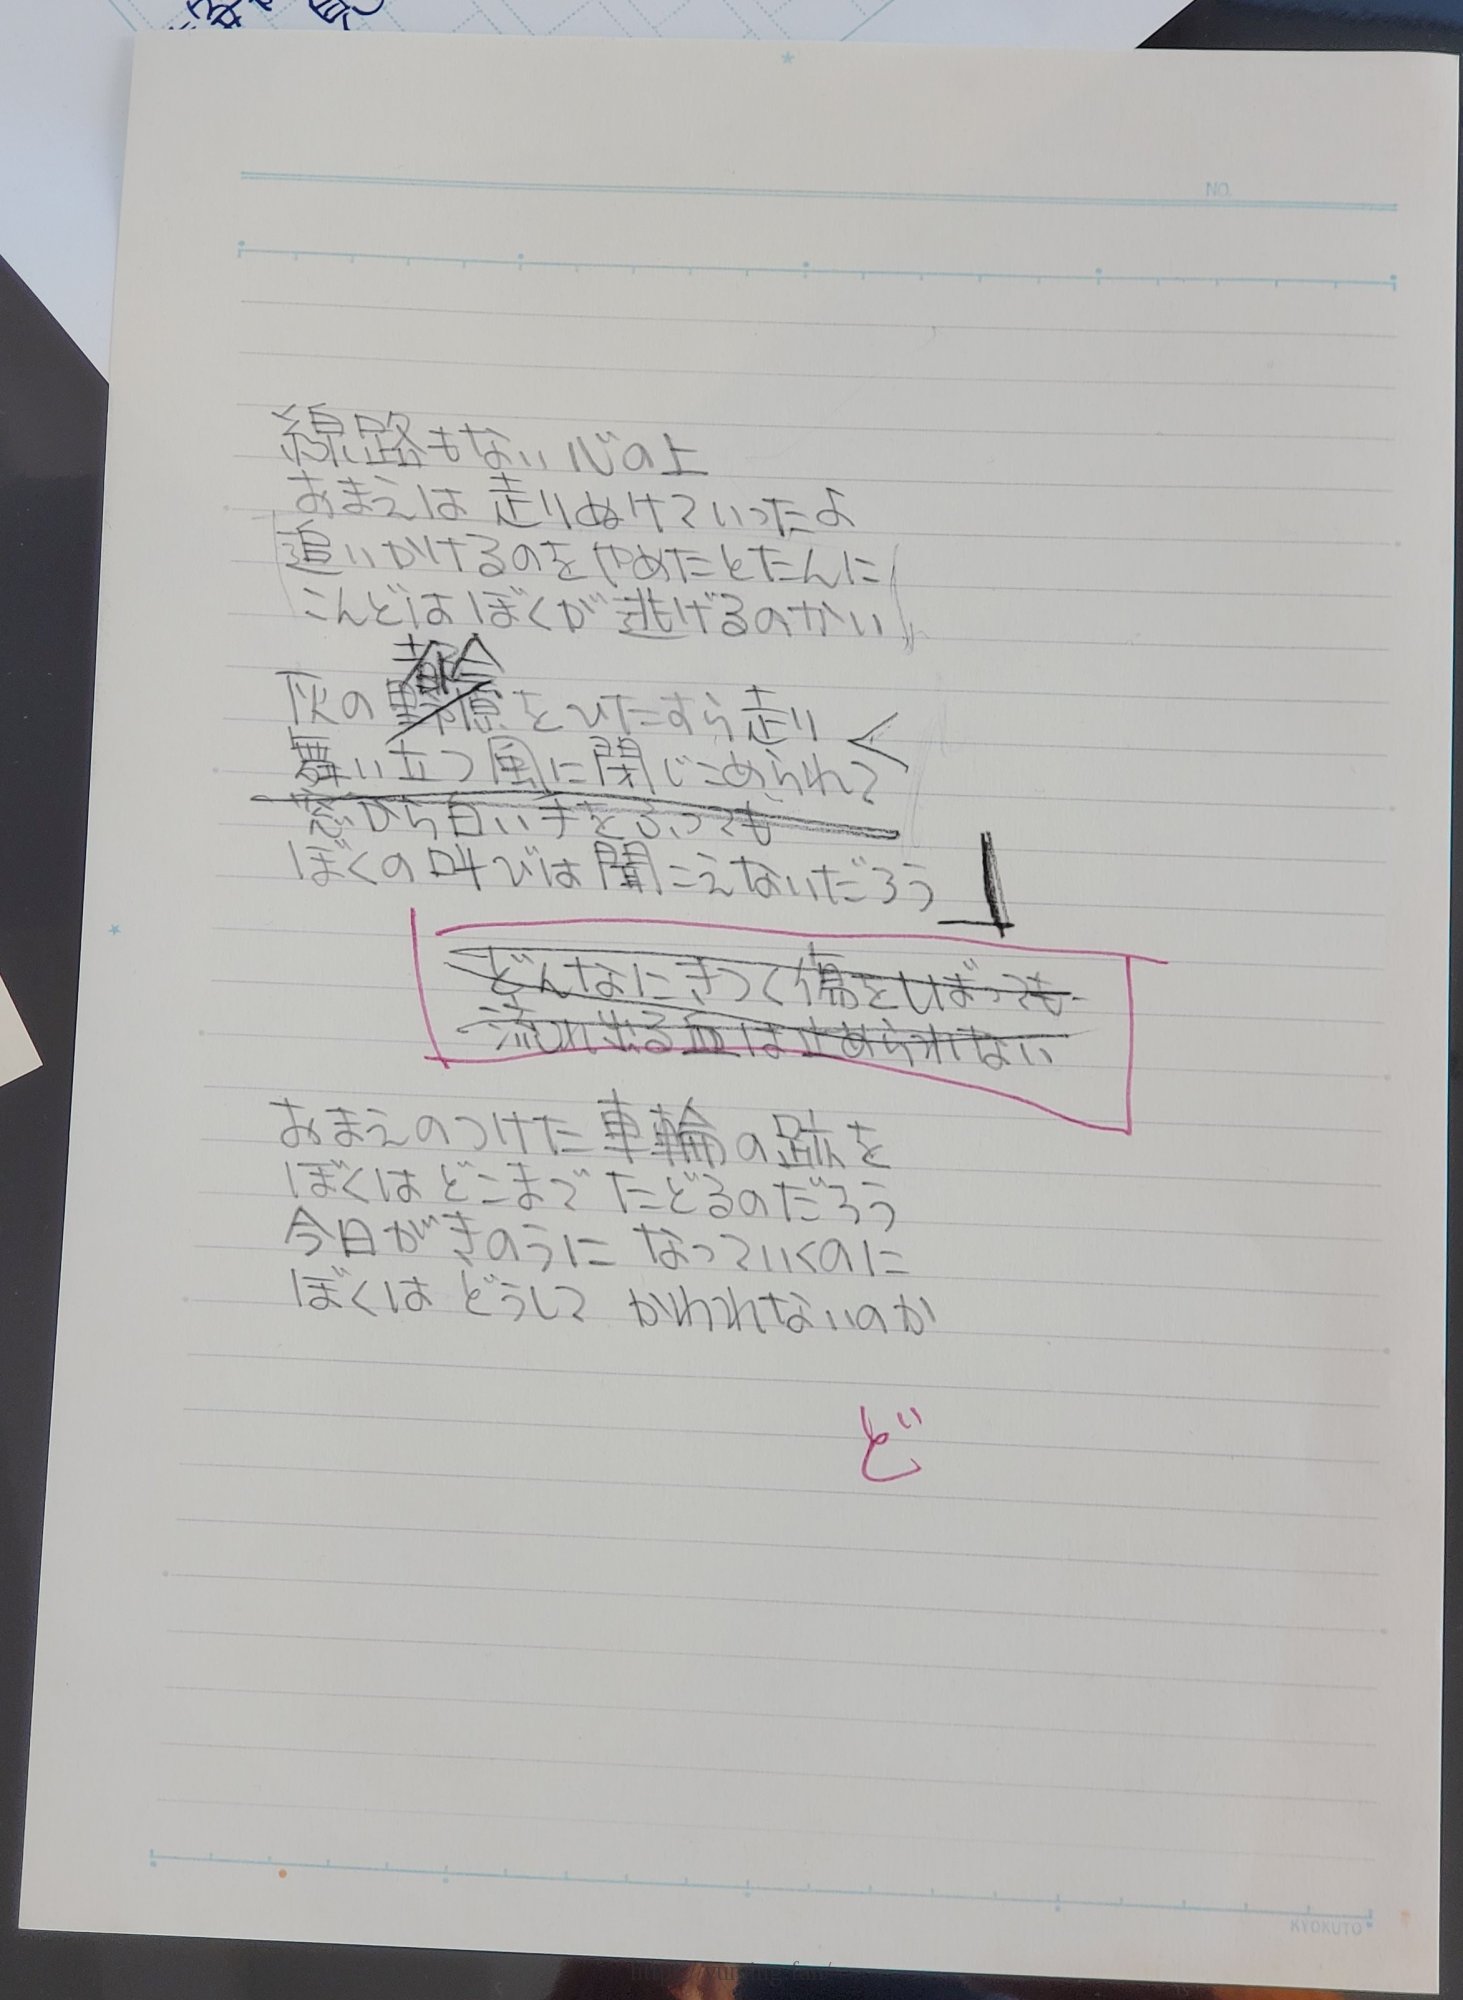 NO.
線路もない心の上
おまえは走りぬけていったよ
追いかけるのをやめたとたんに
こんどはぼくが逃げるのかい
都会
灰の野原をひたすら走り
舞い立つ風に閉じこめられて
窓から白い手をふっても
ぼくの叫びは聞こえないだろう
どんなにきつく傷をしばっても
流れ出る血は止められない
おまえのつけた車輪の跡を
ぼくはどこまでたどるのだろう
今日がきのうになっていくのに
ぼくはどうしてかわれないのか
ど
KYOKUTO